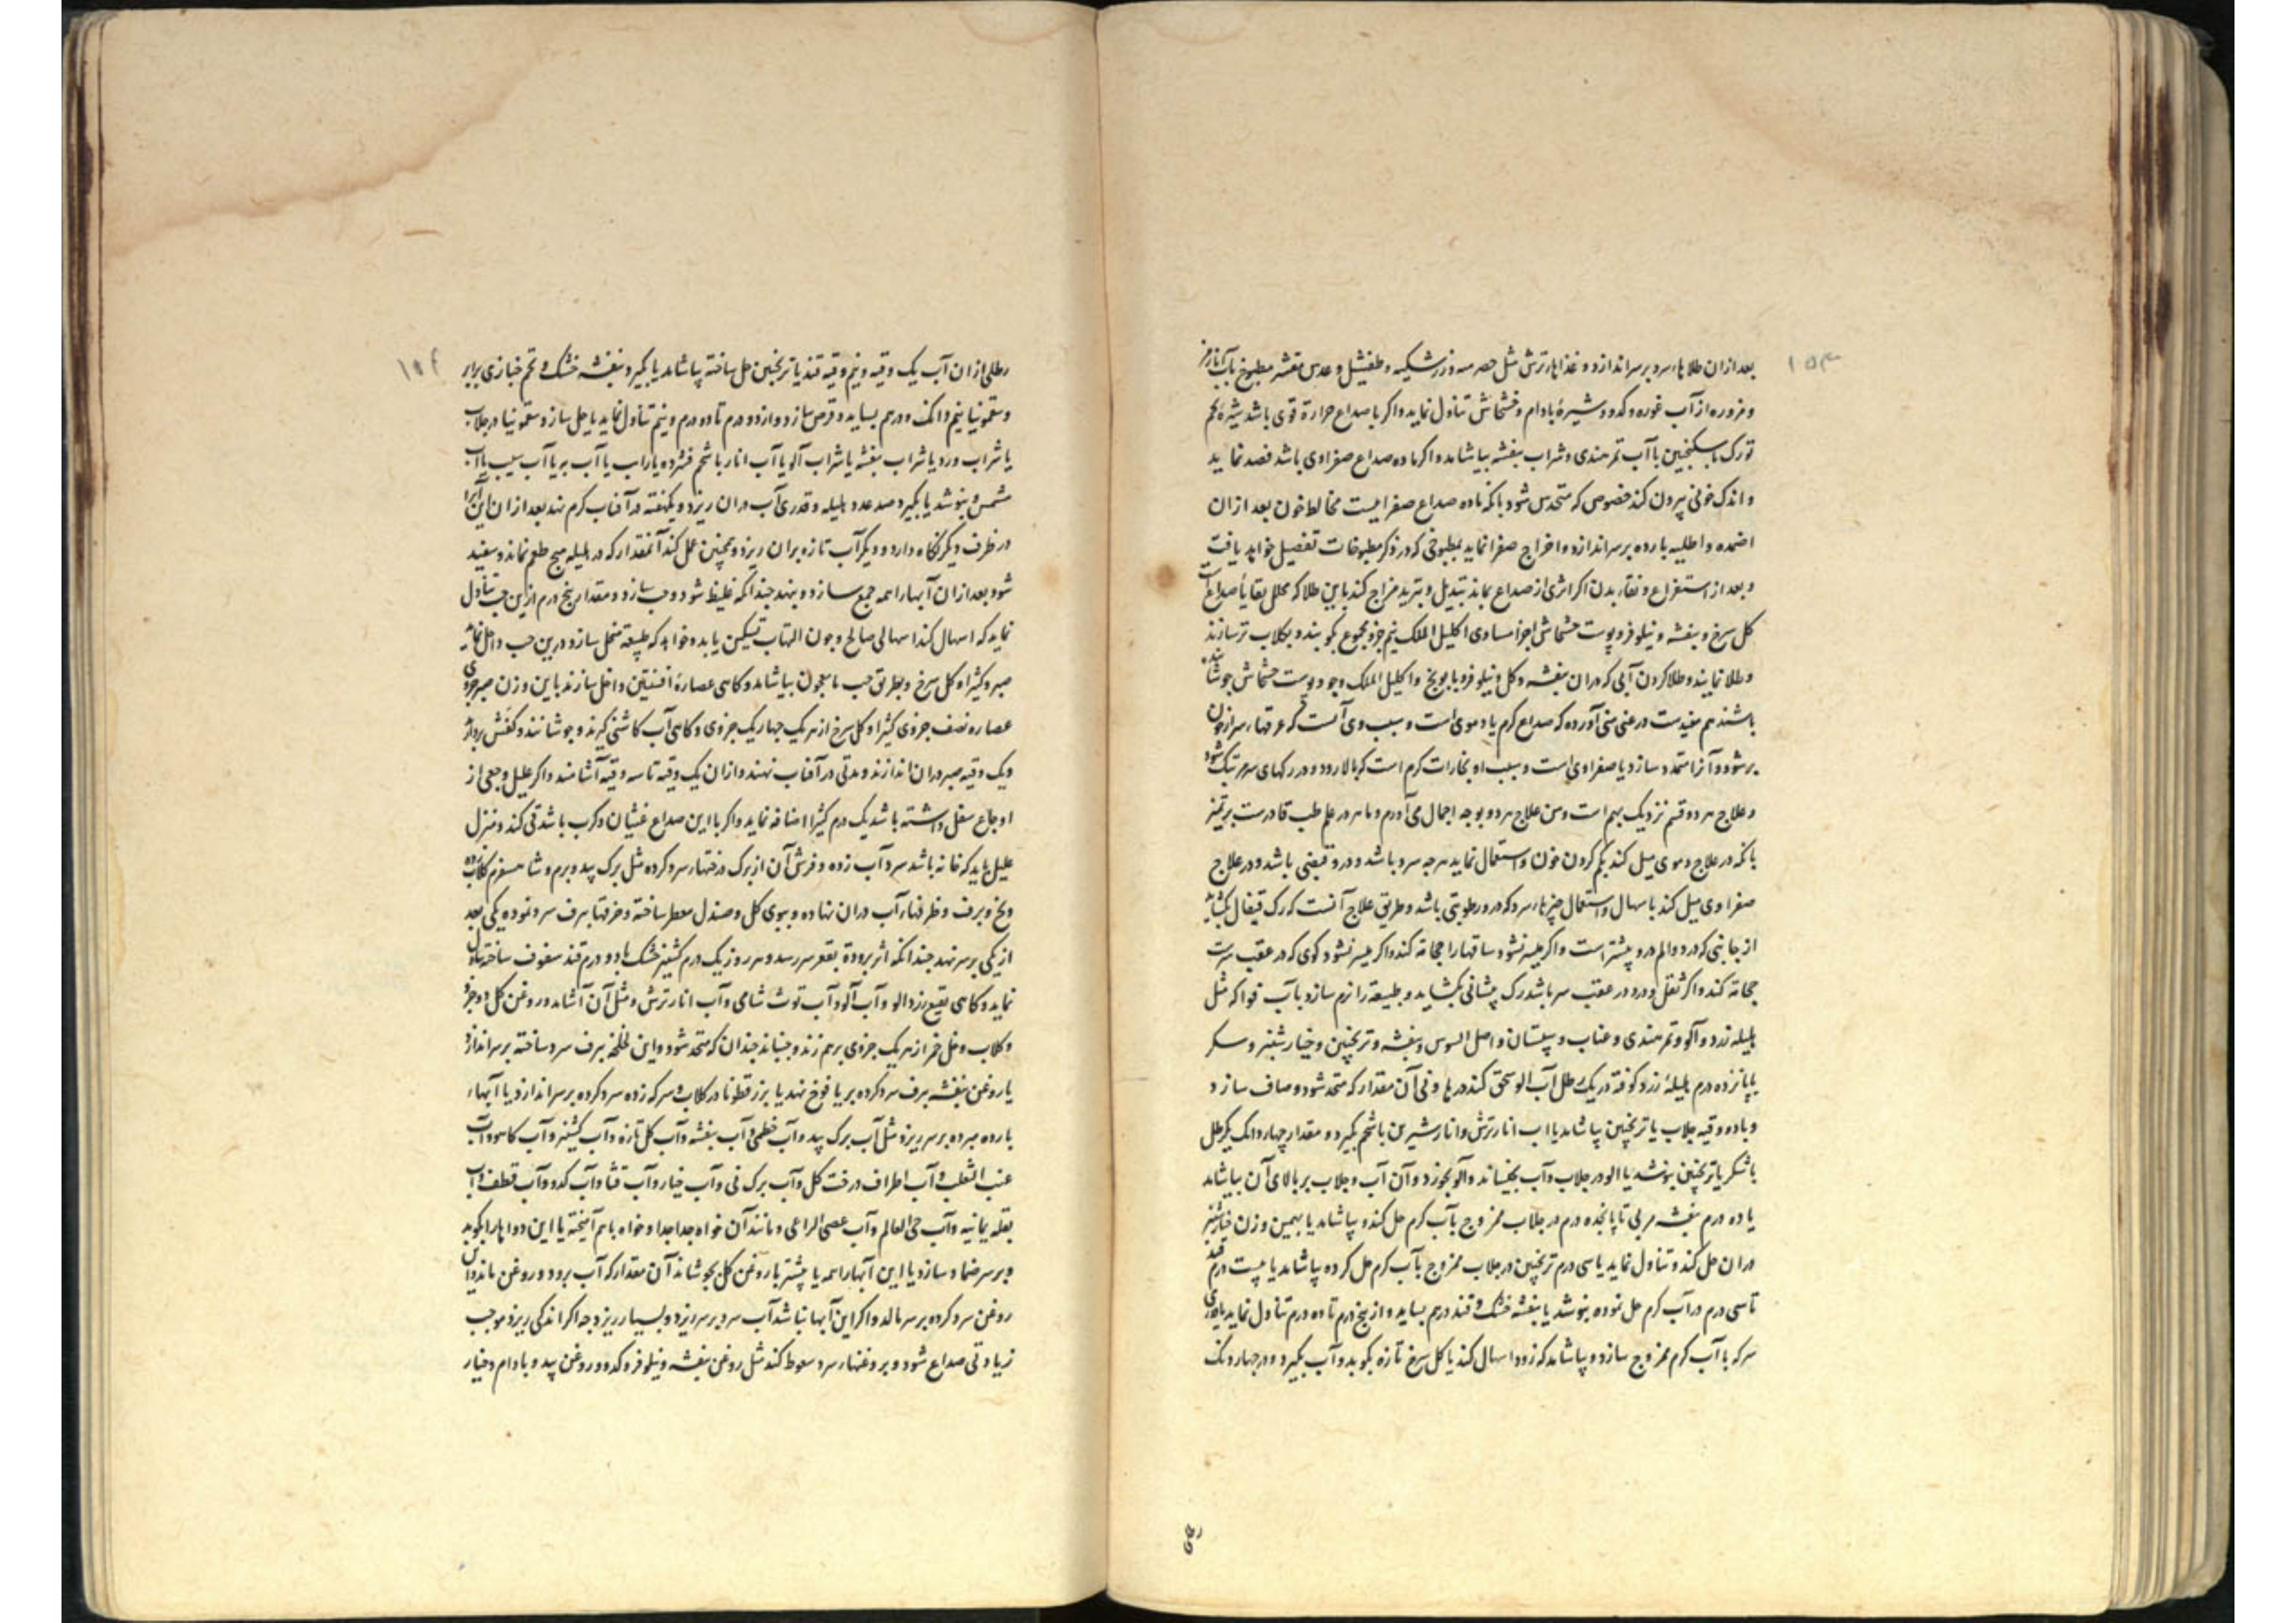 ۱۵۳
بعد ازان طلاهاء سرد بر سر اندازد و غذاهاء ترش مثل حصرمیه و زرشکیه و طفیشل و عدس مقشر مطبوخ بآب انار
و مزوره از آب غوره و کدو و شیرهٔ بادام و خشخاش تناول نماید و اکر با صداع حرارة قوی باشد شیرهٔ تخم
تورک با سکنجبین با آب تمر هندی و شراب بنفشه بیاشامد و اکر ماده صداع صفراوی باشد فصد نماید
و اندک خونی بیرون کند خصوصی که متحدس شود بانکه ماده صداع صفراییست مخالط خون بعد ازان
اضمده و اطلیه بارده بر سر اندازد و اخراج صفرا نماید بمطبوخی که در ذکر مطبوخات تفصیل خواهد یافت
و بعد از استفراغ و نقاء بدن اکر اثری از صداع بماند تبدیل و تبرید مزاج کند باین طلا که محلل بقایا صداع است
کل سرخ و بنفشه و نیلوفر و پوست خشخاش اجزا مساوی اکلیل الملک نیم جزو مجموع بکوبند و بکلاب تر سازند
و طلا نمایند و طلا کردن آبی که دران بنفشه و کل و نیلوفر و بابونج و اکلیل الملک و جو و پوست خشخاش جوشانیده
باشند هم مفیدست در غنی منی آورده که صداع کرم یا دموی است و سبب وی آنست که عرقهاء سر از خون
پر شود و آنرا متمدد سازد یا صفراوی است و سبب او بخارات کرم است که بالا رود و در رکهای سر مرتبک شود
و علاج هر دو قسم نزدیک بهم است و من علاج هر دو بوجه اجمال می آورم و ماهر در علم طب قادرست بر تمیز
بانکه در علاج دموی میل کند بکم کردن خون و استعمال نماید هر چه سرد باشد و درو قبضی باشد و در علاج
صفراوی میل کند باسهال و استعمال چیزهاء سرد که درو رطوبتی باشد و طریق علاج آنست که رک قیفال بکشاید
از جانبی که درد و الم درو بیشتر است و اکر میسر نشود ساقها را حجامة کند و اکر میسر نشود کوی که در عقب سرست
حجامة کند و اکر ثقل و درد در عقب سر باشد رک پیشانی بکشاید و طبیعة را نرم سازد بآب فواکه مثل
هلیله زرد و آلو و تمر هندی و عناب و سپستان و اصل السوس و بنفشه و ترنجبین و خیار شنبر و سکر
یا پانزده درم هلیلهٔ زرد کوفته در یک رطل آب الو سحق کند در هاونی آن مقدار که متحد شود و صاف سازد
و با ده وقیه جلاب یا ترنجبین بیاشامد یا اب انار ترش و انار شیرین با شحم بکیرد و مقدار چهار دانک یکرطل
با شکر یا ترنجبین بنوشد یا الو در جلاب و آب بخیساند و آلو بخورد و آن آب و جلاب بر بالای آن بیاشامد
یا ده درم بنفشه مربی تا پانجده درم در جلاب ممزوج بآب کرم حل کند و بیاشامد یا بهمین وزن خیار شنبر
دران حل کند و تناول نماید یا سی درم ترنجبین در جلاب ممزوج بآب کرم حل کرده بیاشامد یا بیست درم قند
تا سی درم در آب کرم حل نموده بنوشد یا بنفشه خشک و قند در هم بساید و از پنج درم تا ده درم تناول نماید یا
سرکه با آب کرم ممزوج سازد و بیاشامد که زود اسهال کند یا کل سرخ تازه بکوبد و آب بکیرد و در چهار دنک
رطلی ازان آب یک وقیه و نیم وقیه قند یا ترنجبین حل ساخته بیاشامد یا بکیرد بنفشه خشک و تخم خبازی برابر
و سقمونیا نیم دانک و در هم بساید و قرص سازد و از دو درم تا دو درم و نیم تناول نماید یا حل سازد سقمونیا در جلاب
یا شراب ورد یا شراب بنفشه یا شراب آلو یا آب انار با شحم فشرده یا راب یا آب به یا آب سیب یا آب
مشمش و بنوشد یا بکیرد صد عدد هلیله و قدری آب دران ریزد و یکهفته در آفتاب کرم نهد بعد ازان این آب را
در ظرف دیکر نکاه دارد و دیکر آب تازه بران ریزد و همچنین عمل کند آنمقدار که در هلیله هیچ طعم نماند و سفید
شود بعد ازان آبها را همه جمع سازد و بنهد چندانکه غلیظ شود و حب سازد و مقدار پنج درم ازین حب تناول
نماید که اسهال کند اسهالی صالح و چون التهاب تسکین یابد و خواهد که طبیعة منحل سازد درین حب داخل نماید
صبر و کثیرا و کل سرخ و بطریق حب یا معجون بیاشامد و کاهی عصارهٔ افسنتین داخل سازند باین وزن صبر جزوی
عصاره نصف جزوی کثیرا و کل سرخ از هر یک چهار یک جزوی و کاهی آب کاشنی کیرند و جوشانند و کفش بردارند
و یک وقیه صبر دران اندازند و مدتی در آفتاب نهند و ازان یک وقیه تا سه وقیه آشامند و اکر علیل وجعی از
اوجاع سفل داشته باشد یک درم کثیرا اضافه نماید و اکر با این صداع غثیان و کرب باشد قی کند و منزل
علیل باید که خانه باشد سرد آب زده و فرش آن از برک درختهاء سرد کرده مثل برک بید و برم و شاهسفرم کلاب زده
و یخ و برف و ظرفهاء آب دران نهاده و ببوی کل و صندل معطر ساخته و خرقها ببرف سرد نموده یکی بعد
از یکی بر سر نهد چندانکه اثر برودة بقعر سر رسد و هر روز یک درم کشنیز خشک با دو درم قند سفوف ساخته تناول
نماید و کاهی نقیع زردالو و آب آلو و آب توث شامی و آب انار ترش و مثل آن آشامد و روغن کل دو جزو
و کلاب و خل خمر از هر یک جزوی بر هم زند و جنباند چندان که متحد شود و این لخلخه ببرف سرد ساخته بر سر اندازد
یا روغن بنفشه ببرف سرد کرده بر یافوخ نهد یا بزر قطونا در کلاب و سرکه زده سرد کرده بر سر اندازد یا آبهاء
بارده مبرده بر سر ریزد مثل آب برک بید و آب خطمی و آب بنفشه و آب کل تازه و آب کشنیز و آب کاهو و آب
عنب الثعلب و آب اطراف درخت کل و آب برک نی و آب خیار و آب قثا و آب کدو و آب قطف و آب
بقله یمانیه و آب حی العالم و آب عصی الراعی و مانند آن خواه جدا جدا و خواه باهم آمیخته یا این دواها را بکوبد
و بر سر ضماد سازد یا این آبها را همه یا بیشتر با روغن کل بجوشاند آن مقدار که آب برود و روغن ماند و این
روغن سرد کرده بر سر مالد و اکر این آبها نباشد آب سرد بر سر ریزد و بسیار ریزد چه اکر اندکی ریزد موجب
زیادتی صداع شود و بروغنهاء سرد سعوط کند مثل روغن بنفشه و نیلوفر و کدو و روغن بید و بادام و خیار